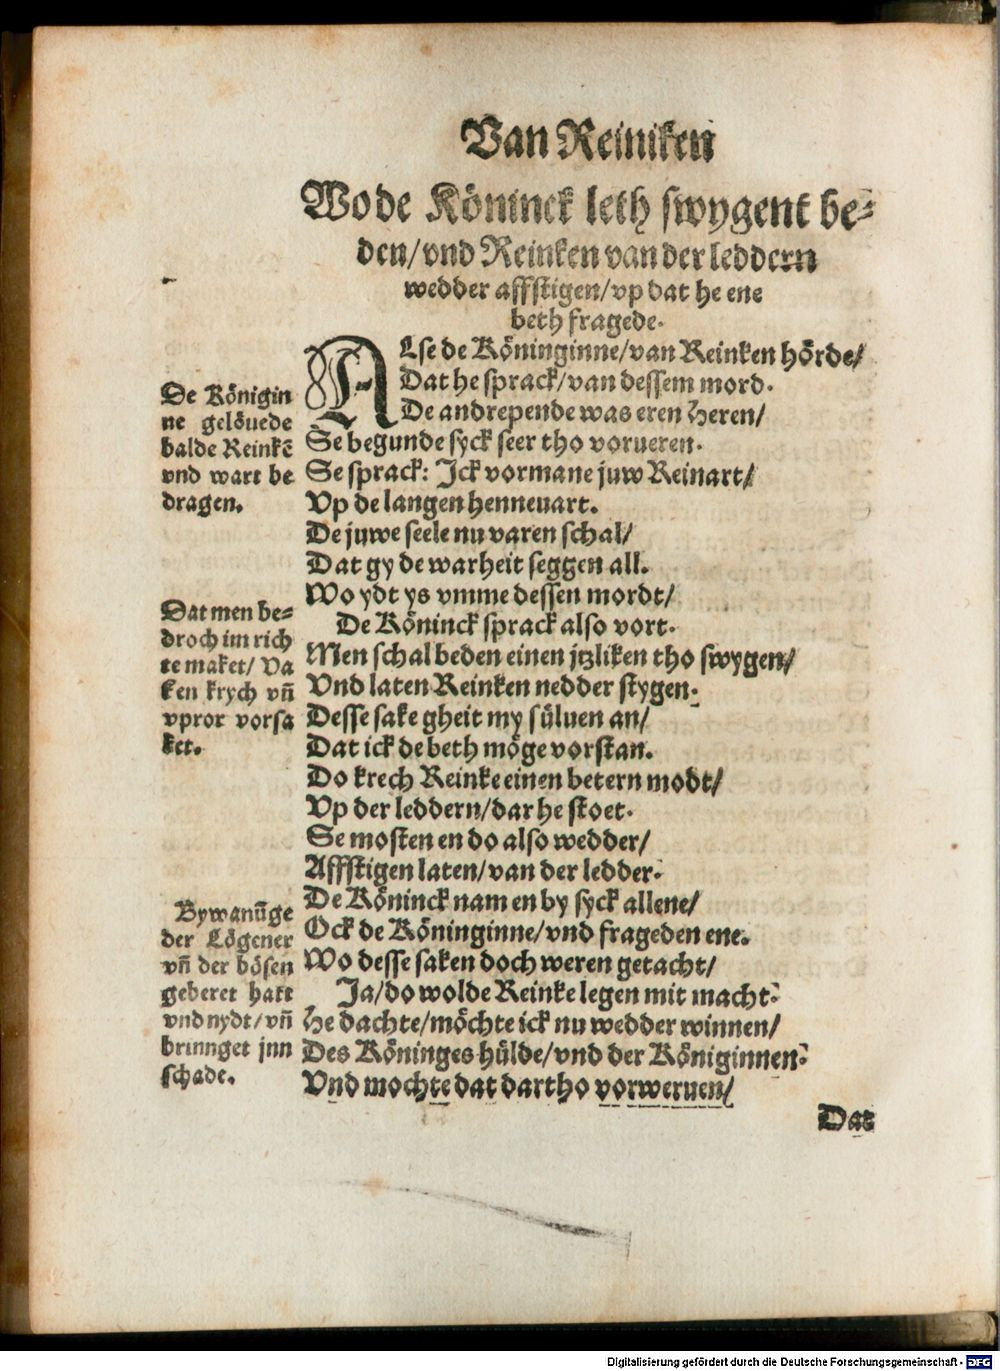 Van Reiniken
Wo de Köninck leth swygent be⸗
den/vnd Reinken van der leddern
wedder affstigen/vp dat he ene
beth fragede.
ALse de Köninginne/van Reinken hörde/
Dat he sprack/van dessem mord.
De andrepende was eren Heren/
Se begunde syck seer tho vorueren.
Se sprack: Jck vormane juw Reinart/
Vp de langen henneuart.
De juwe seele nu varen schal/
Dat gy de warheit seggen all.
Wo ydt ys vmme dessen mordt/
De Köninck sprack also vort.
Men schal beden einen jtzliken tho swygen/
Vnd laten Reinken nedder stygen.
Desse sake gheit my süluen an/
Dat ick de beth möge vorstan.
Do krech Reinke einen betern modt/
Vp der leddern/dar he stoet.
Se mosten en do also wedder/
Affstigen laten/van der ledder.
De Köninck nam en by syck allene/
Ock de Köninginne/vnd frageden ene.
Wo desse saken doch weren getacht/
Ja/do wolde Reinke legen mit macht.
He dachte/möchte ick nu wedder winnen/
Des Köninges hülde/vnd der Königinnen.
Vnd mochte dat dartho vorweruen/
Dat
De Königin
ne gelöuede
balde Reinkē
vnd wart be
dragen.
Dat men be⸗
droch im rich
te maket/ Va
ken krych vn̄
vpror vorsa
ket.
Bywanūge
der Lögener
vn̄ der bösen
geberet hatt
vnd nydt/vn̄
brinnget jnn
schade.
Digitalisierung gefördert durch die Deutsche Forschungsgemeinschaft - DFG